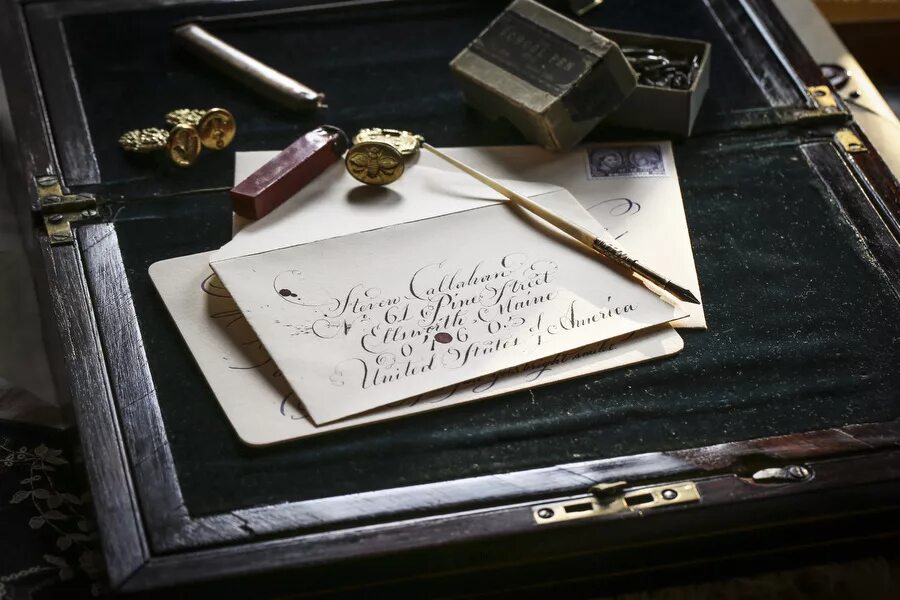 PEN
Steven Callahan
Nº 61 Pine Street
Ellsworth Maine
0 4 6 0 5
United States of America